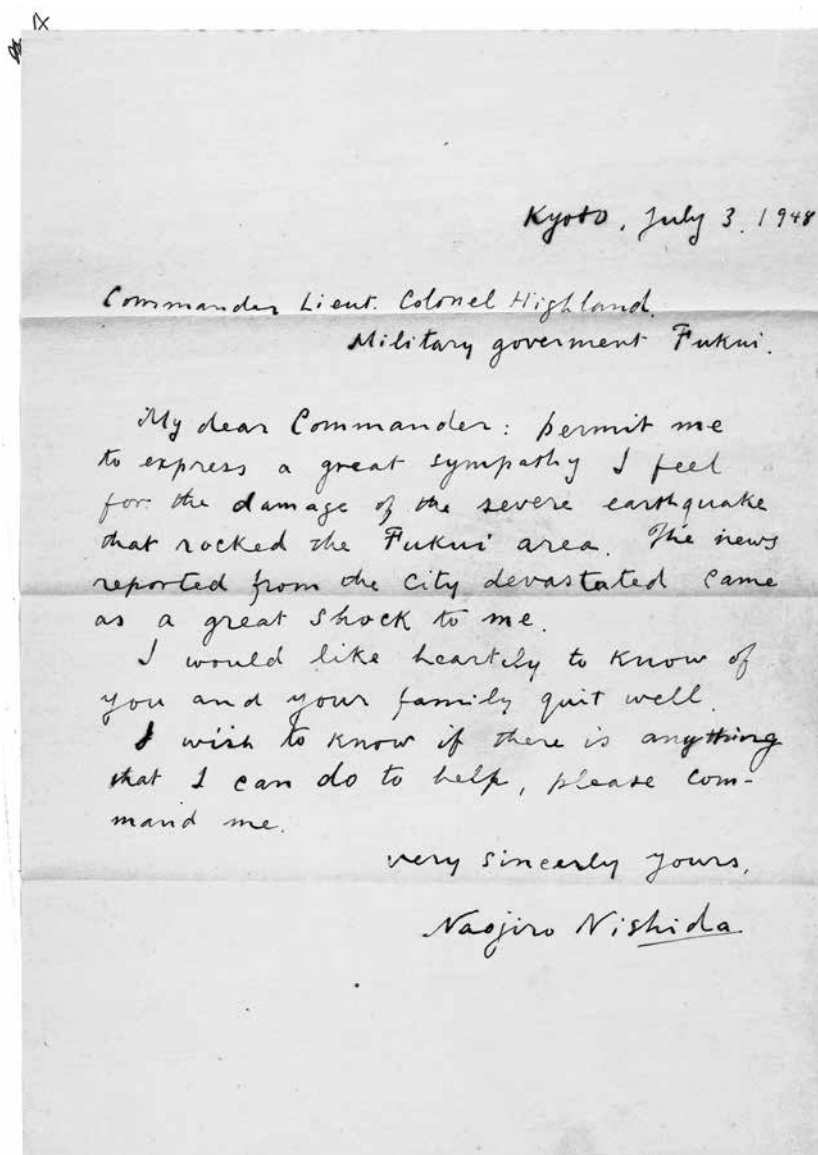 Kyoto, July 3. 1948
Commander Lieut. Colonel Highland.
Military goverment Fukui.
My dear Commander: permit me
to express a great sympathy I feel
for the damage of the severe earthquake
that rocked the Fukui area. The news
reported from the city devastated came
as a great shock to me.
I would like heartily to know of
you and your family quit well.
I wish to know if there is anything
that I can do to help, please com-
mand me.
very sincerly yours,
Naojiro Nishida